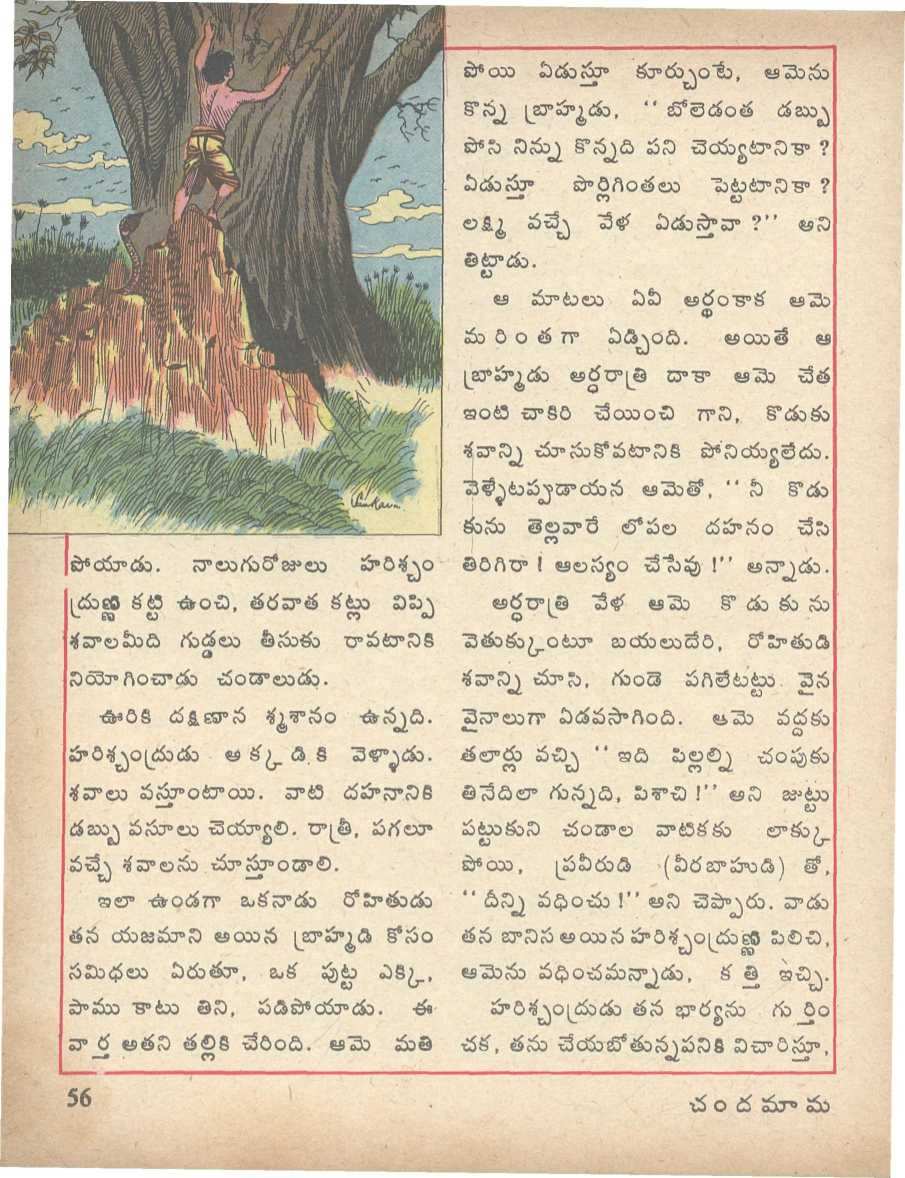 పోయాడు. నాలుగురోజులు హరిశ్చం
ద్రుణ్ణి కట్టి ఉంచి, తరవాత కట్లు విప్పి
శవాలమీది గుడ్డలు తీసుకు రావటానికి
నియోగించాడు చండాలుడు.
ఊరికి దక్షిణాన శ్మశానం ఉన్నది.
హరిశ్చంద్రుడు అక్కడికి వెళ్ళాడు.
శవాలు వస్తూంటాయి. వాటి దహనానికి
డబ్బు వసూలు చెయ్యాలి. రాత్రీ, పగలూ
వచ్చే శవాలను చూస్తూండాలి.
ఇలా ఉండగా ఒకనాడు రోహితుడు
తన యజమాని అయిన బ్రాహ్మడి కోసం
సమిధలు ఏరుతూ, ఒక పుట్ట ఎక్కి,
పాము కాటు తిని, పడిపోయాడు. ఈ
వార్త అతని తల్లికి చేరింది. ఆమె మతి
పోయి ఏడుస్తూ కూర్చుంటే, ఆమెను
కొన్న బ్రాహ్మడు, "బోలెడంత డబ్బు
పోసి నిన్ను కొన్నది పని చెయ్యటానికా?
ఏడుస్తూ పొర్లిగింతలు పెట్టటానికా?
లక్ష్మి వచ్చే వేళ ఏడుస్తావా?" అని
తిట్టాడు.
ఆ మాటలు ఏవీ అర్థంకాక ఆమె
మరింతగా ఏడ్చింది. అయితే ఆ
బ్రాహ్మడు అర్ధరాత్రి దాకా ఆమె చేత
ఇంటి చాకిరి చేయించి గాని, కొడుకు
శవాన్ని చూసుకోవటానికి పోనియ్యలేదు.
వెళ్ళేటప్పుడాయన ఆమెతో, "నీ కొడు
కును తెల్లవారే లోపల దహనం చేసి
తిరిగిరా! ఆలస్యం చేసేవు!" అన్నాడు.
అర్ధరాత్రి వేళ ఆమె కొడుకును
వెతుక్కుంటూ బయలుదేరి, రోహితుడి
శవాన్ని చూసి, గుండె పగిలేటట్టు వైన
వైనాలుగా ఏడవసాగింది. ఆమె వద్దకు
తలార్లు వచ్చి "ఇది పిల్లల్ని చంపుకు
తినేదిలా గున్నది, పిశాచి!" అని జుట్టు
పట్టుకుని చండాల వాటికకు లాక్కు
పోయి, ప్రవీరుడి (వీరబాహుడి) తో,
"దీన్ని వధించు!" అని చెప్పారు. వాడు
తన బానిస అయిన హరిశ్చంద్రుణ్ణి పిలిచి,
ఆమెను వధించమన్నాడు, కత్తి ఇచ్చి.
హరిశ్చంద్రుడు తన భార్యను గుర్తిం
చక, తను చేయబోతున్నపనికి విచారిస్తూ,
56
చందమామ